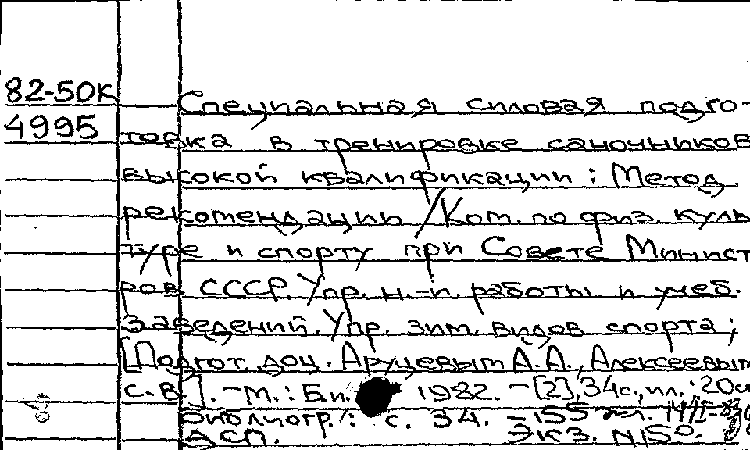 82-50К
4995
Специальная силовая подго-
товка в тренировке саночников
высокой квалификации: Метод
рекомендации / Ком. по физ. куль
туре и спорту при Совете Минист
ров СССР. Упр. н.-и. работы и учеб.
заведений. Упр. зим. видов спорта;
[Подгот. доц. Аруцевым А.А., Алексеевым
С.В.]. - М.: Б.и. 1982. - [2], 34 с., ил.; 20см
Библиогр.: с. 34. - 155
АСП. ЭКЗ. N150.